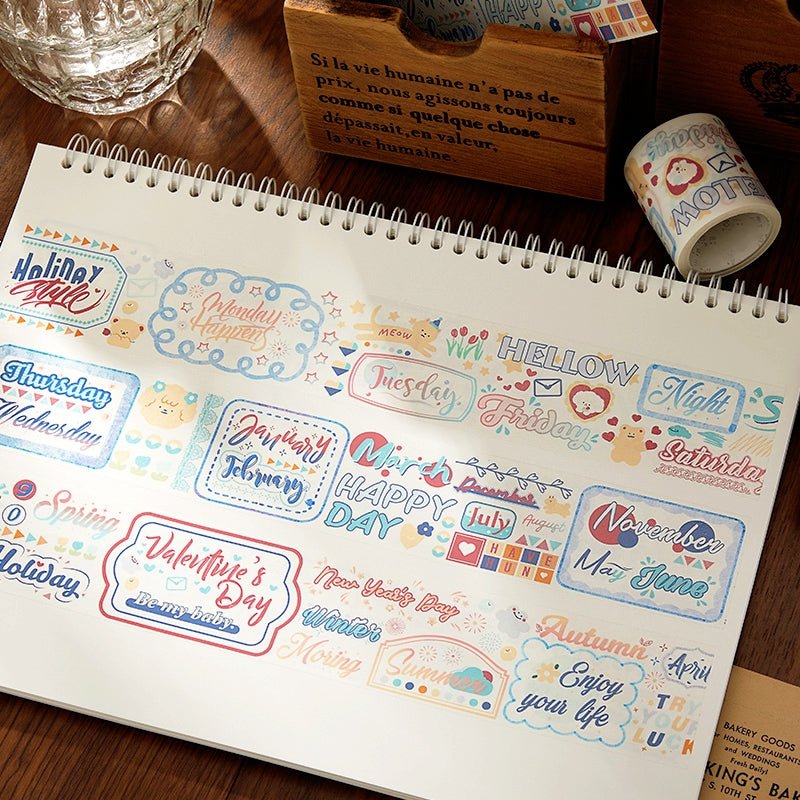 HAPPY
Si la vie humaine n'a pas de
prix, nous agissons toujours
comme si quelque chose
dépassait, en valeur,
la vie humaine.
HELLOW
Holiday
style
Monday
Happens
MEOW
Tuesday
HELLOW
Friday
Night
Saturda
Thursday
Wednesday
January
February
March
HAPPY
DAY
December
July
August
HAVE
FUN
November
May June
9
0
Spring
Holiday
Valentine's
Day
Be my baby
New Year's Day
Winter
Moring
Summer
Autumn
Enjoy
your life
April
TRY
YOUR
LUCK
BAKERY GOODS
HOMES, RESTAURANTS
and WEDDINGS
Fresh Daily!
KING'S BAK
S. 10TH ST